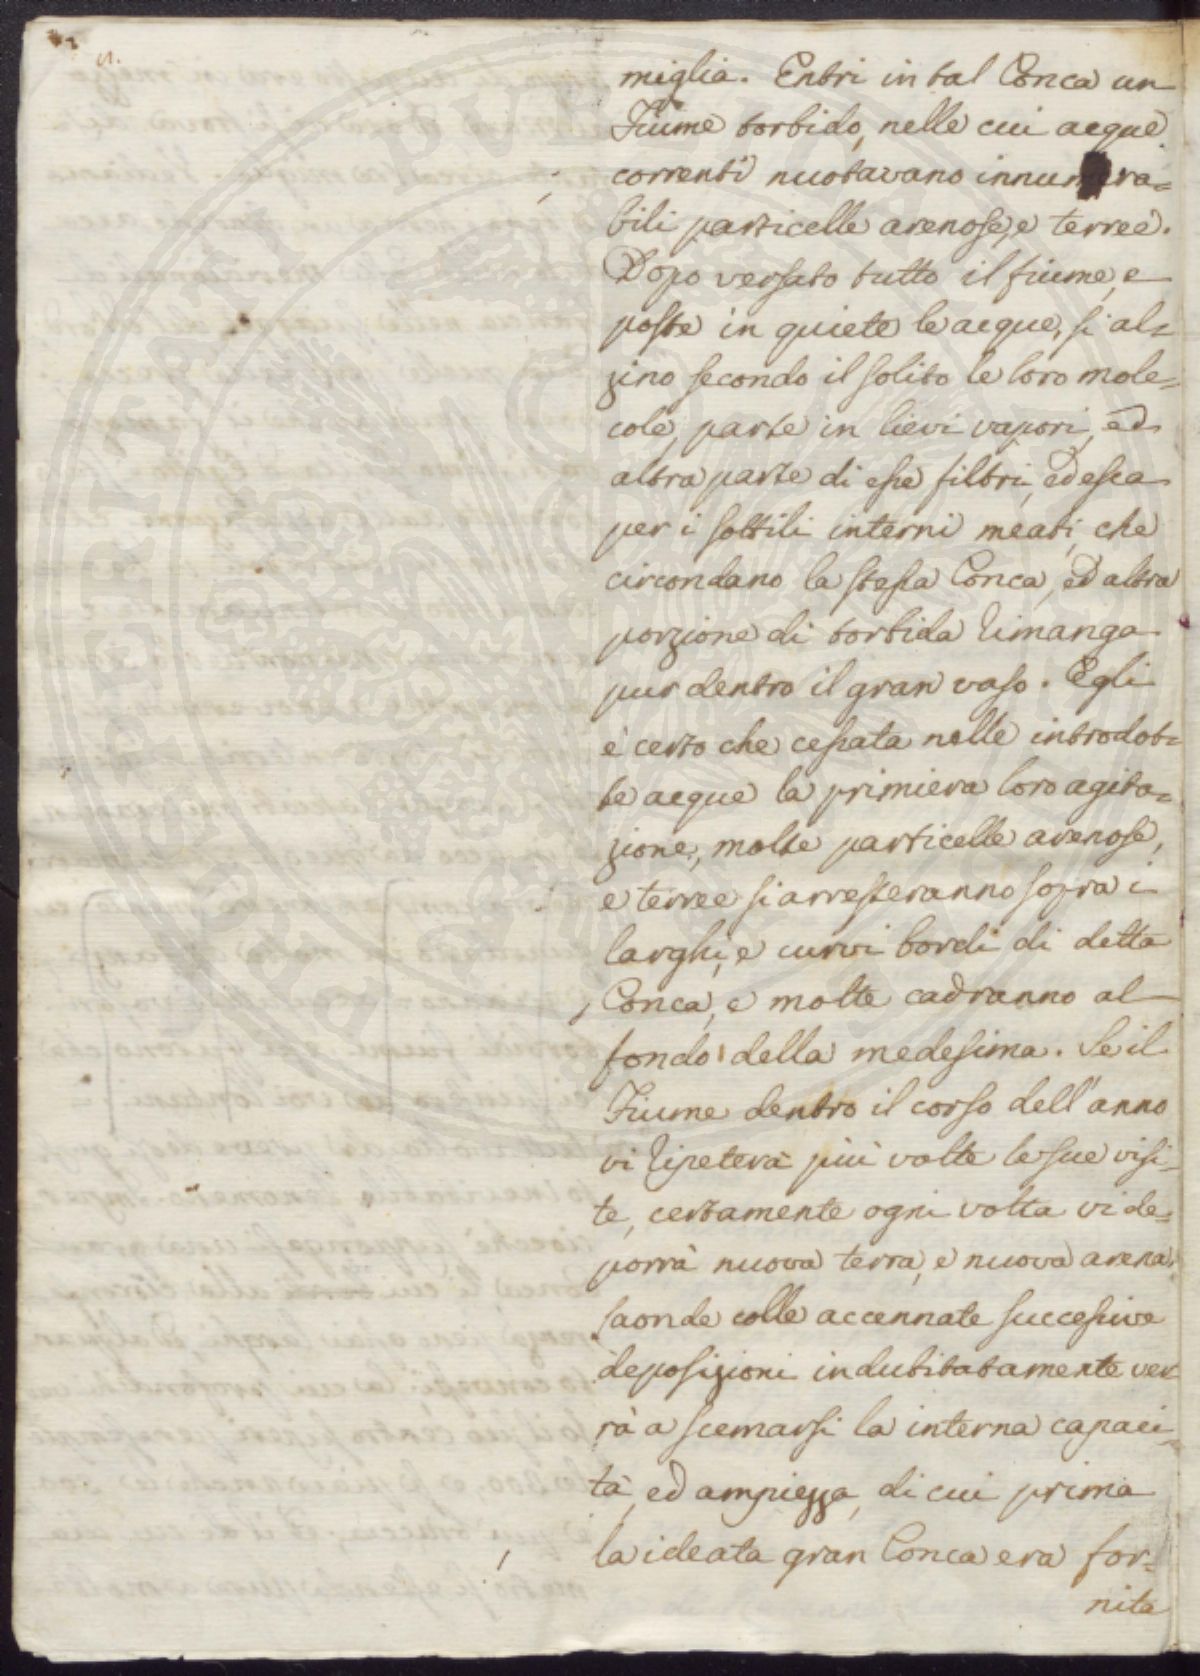 miglia. Entri in tal Conca un
Fiume torbido, nelle cui acque
correnti nuotavano innumera=
bili particelle arenose, e terree.
Dopo versato tutto il fiume, e
poste in quiete le acque, si al=
zino secondo il solito le loro mole=
cole, parte in lievi vapori, ed
altra parte di esse filtri, ed esca
per i sottili interni meati, che
circondano la stessa Conca, ed altra
porzione di torbida rimanga
pur dentro il gran vaso. Egli
è certo che cessata nelle introdot=
te acque la primiera loro agita=
zione, molte particelle arenose,
e terree si arresteranno sopra i
larghi, e curvi bordi di detta
Conca, e molte cadranno al
fondo della medesima. Se il
Fiume dentro il corso dell'anno
vi ripeterà più volte le sue visi=
te, certamente ogni volta vi de=
porrà nuova terra, e nuova arena,
laonde colle accennate successive
deposizioni indubitatamente ver
rà a scemarsi la interna capaci=
tà, ed ampiezza, di cui prima
la ideata gran Conca era for=
nita